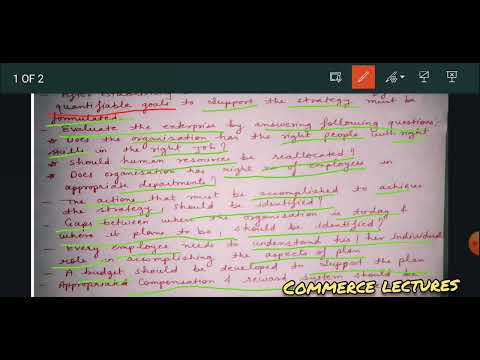 1 OF 2
quantifiable goals to support the strategy must be
formulated.
- Evaluate the enterprise by answering following questions:
* Does the organisation has the right people with right
skills in the right job?
* Should human resources be reallocated?
* Does organisation has right no of employees in
appropriate departments?
- The actions that must be accomplished to achieve
the strategy, should be identified?
- Gaps between where the organisation is today &
where it plans to be, should be identified?
- Every employee needs to understand his/her individual
role in accomplishing the aspects of plan
- A budget should be developed to support the plan
- Appropriate compensation & reward system should be
COMMERCE LECTURES